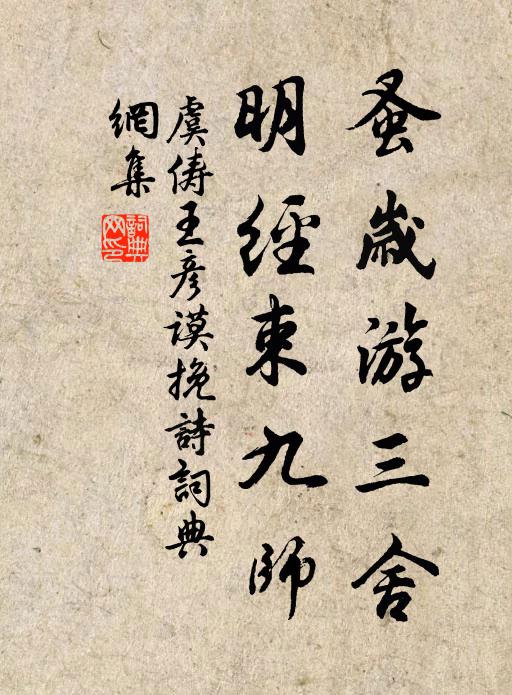 蚤歲游三舍
明經東九師
虞儔王彦謨挽詩詞典
網集
詞典網印